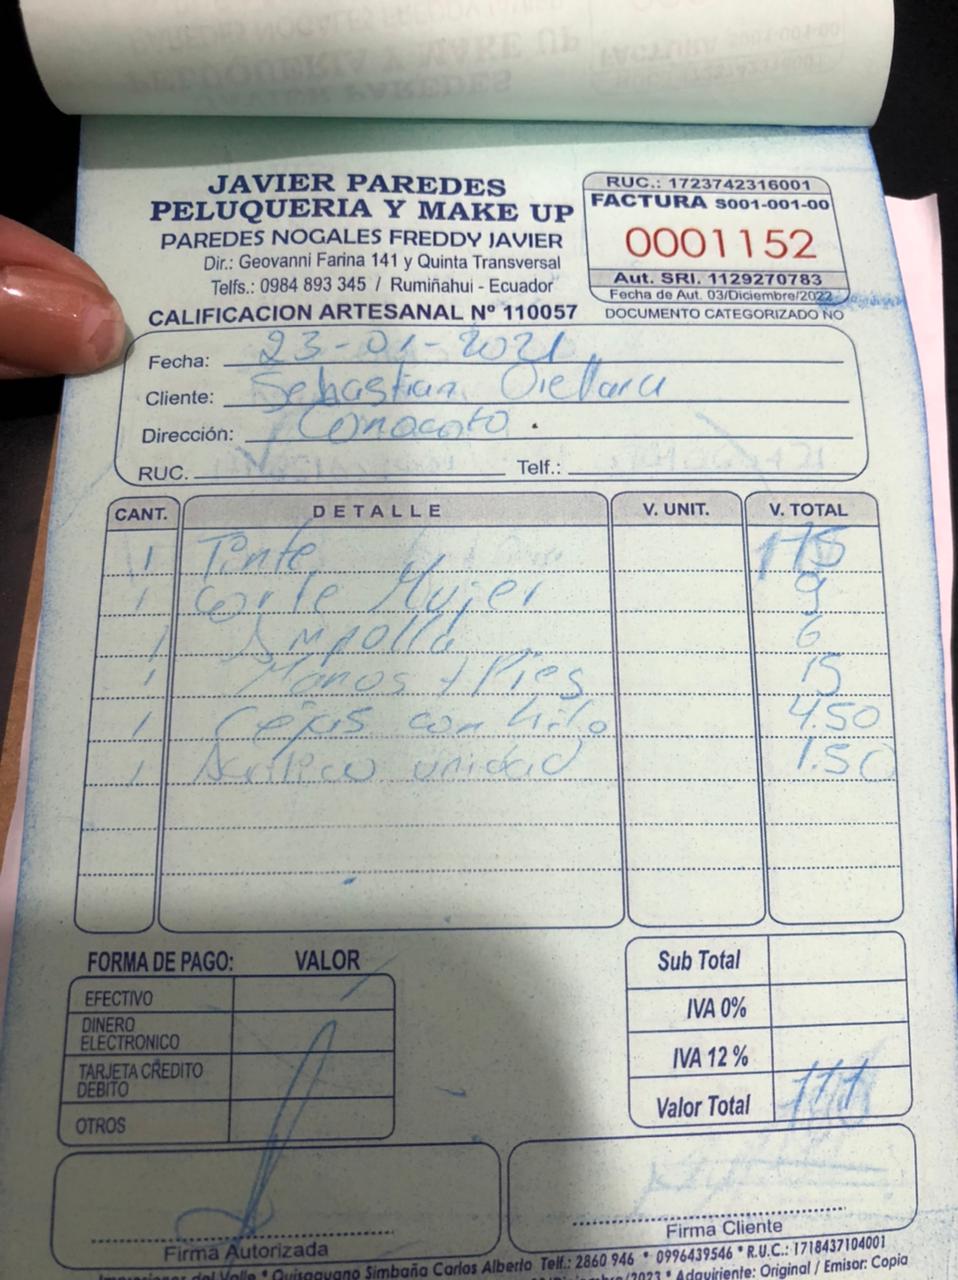 JAVIER PAREDES
PELUQUERIA Y MAKE UP
PAREDES NOGALES FREDDY JAVIER
Dir.: Geovanni Farina 141 y Quinta Transversal
Telfs.: 0984 893 345 / Rumiñahui - Ecuador
CALIFICACION ARTESANAL Nº 110057
RUC.: 1723742316001
FACTURA S001-001-00
0001152
Aut. SRI. 1129270783
Fecha de Aut. 03/Diciembre/2022
DOCUMENTO CATEGORIZADO NO
Fecha: 23-01-2021
Cliente: Sebastian Orellana
Dirección: Conocoto.
RUC. Telf.:
CANT. DETALLE V. UNIT. V. TOTAL
1 Tinte
1 Corte Mujer 9
1 Ampolla 6
1 Manos + Pies 15
1 Cejas con hilo 4.50
1 Acrilico unidad 1.50
FORMA DE PAGO: VALOR
EFECTIVO
DINERO
ELECTRONICO
TARJETA CREDITO
DEBITO
OTROS
Sub Total
IVA 0%
IVA 12 %
Valor Total
Firma Autorizada
Firma Cliente
Impresiones del Valle * Quisaguano Simbaña Carlos Alberto Telf.: 2860 946 * 0996439546 * R.U.C.: 1718437104001
/2023 * Adquiriente: Original / Emisor: Copia